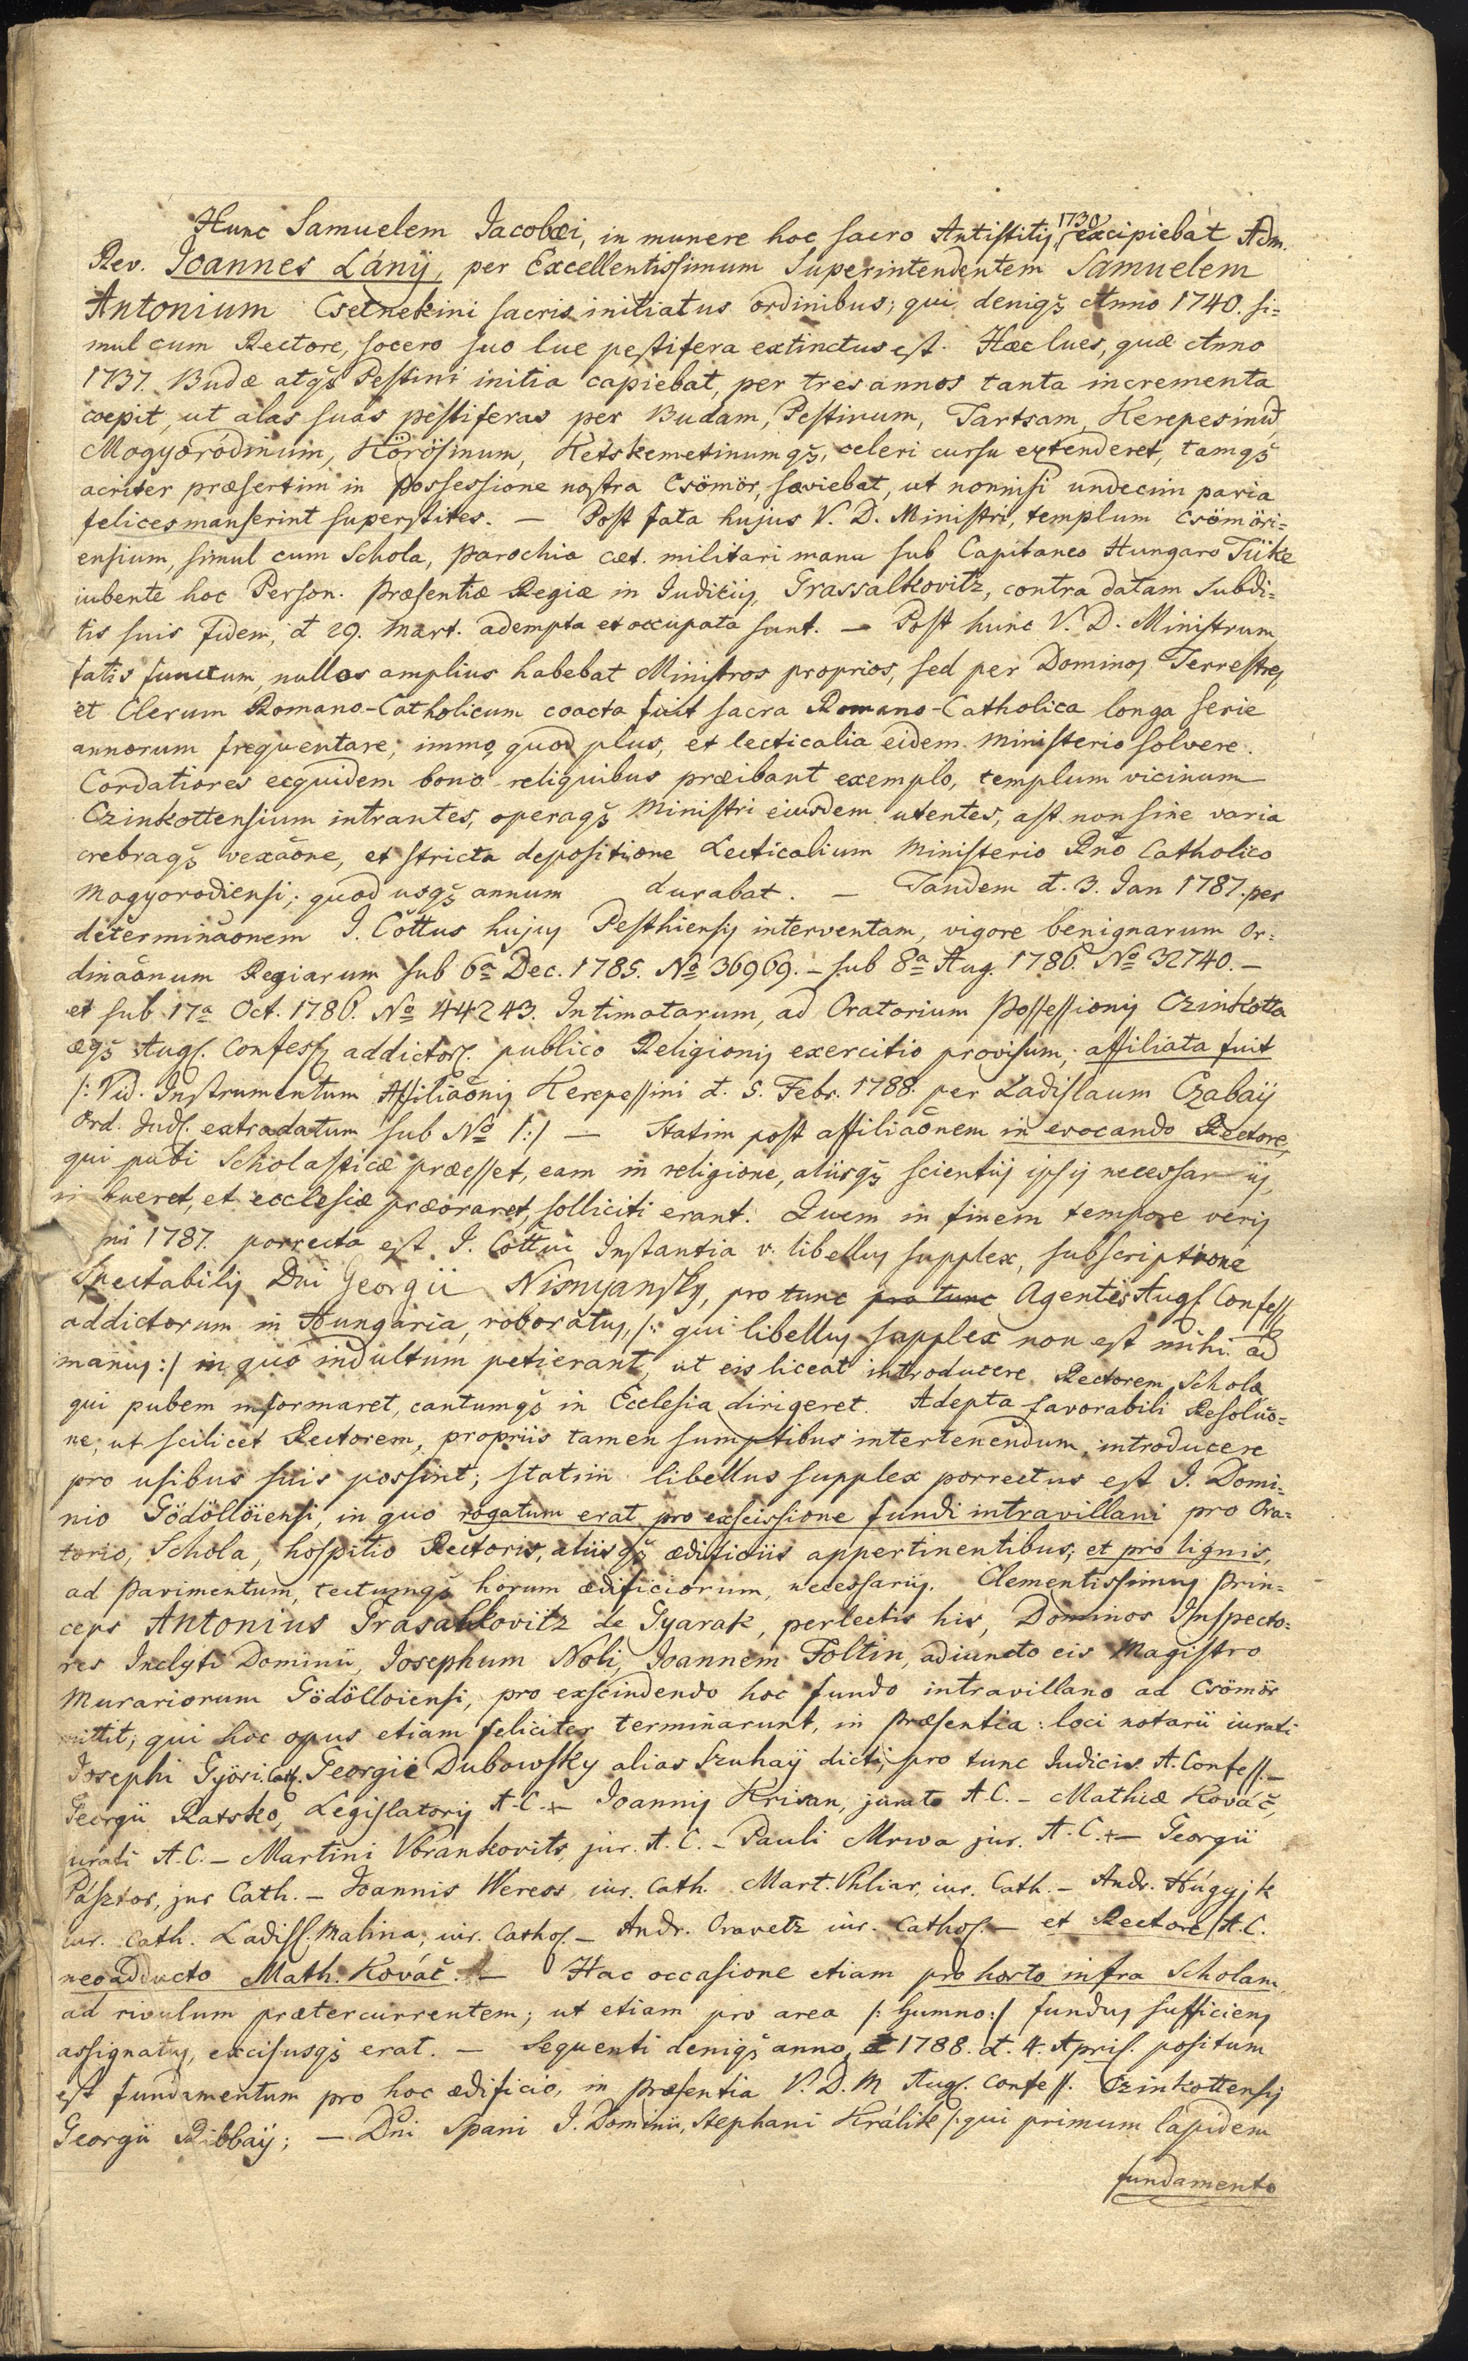 Hunc Samuelem Jacobæi, in munere hoc sacro Antistitis, 1730 excipiebat Adm.
Rev. Joannes Lányi, per Excellentissimum Superintendentem Samuelem
Antonium Csetnekini sacris initiatus ordinibus; qui deniqȝ Anno 1740. si=
mul cum Rectore, socero suo lue pestifera extinctus est. Hæc lues, quæ Anno
1737. Budæ atqȝ Pestini initia capiebat, per tres annos tanta incrementa
coepit, ut alas suas pestiferas per Budam, Pestinum, Tartsam, Kerepesinũ,
Mogyoródinum, Körösinum, Ketskemetinumqȝ, celeri cursu extenderet, tamqȝ
acriter præsertim in possessione nostra Csömör, sæviebat, ut nonnisi undecim paria
felices manserint superstites. — Post fata hujus V. D. Ministri, templum Csömöri=
ensium, simul cum Schola, parochia cæt. militari manu sub Capitaneo Hungaro Tüke
iubente hoc Person. Præsentiæ Regiæ in Judiciis, Grassalkovitz, contra datam Subdi=
tis suis fidem, d. 29. Mart. adempta et occupata sunt. — Post hunc V. D. Ministrum
fatis functum, nullos amplius habebat Ministros proprios, sed per Dominos Terrestres
et Clerum Romano-Catholicum coacta fuit sacra Romano-Catholica longa serie
annorum frequentare; immo, quod plus, et lecticalia eidem ministerio solvere.
Cordatiores ecquidem bono reliquibus præibant exemplo, templum vicinum
Czinkottensium intrantes, operaqȝ Ministri eiusdem utentes, ast non sine varia
crebraqȝ vexaõne, et stricta depositione Lecticalium Ministerio Rño Catholico
Mogyorodiensi; quod usqȝ annum durabat. — Tandem d. 3. Jan 1787. per
determinaõnem I. Cõttus hujus Pesthiensis interventam, vigore benignarum Or=
dinaõnum Regiarum sub 6a Dec. 1785. No 36969. – sub 8a Aug. 1786. No 32740. –
et sub 17a Oct. 1786. No 44243. Intimatarum, ad Oratorium Possessionis Czinkotta
æqȝ Aug. Confess. addictor. publico Religionis exercitio provisum, affiliata fuit
/: Vid. Instrumentum Affiliaõnis Kerepessini d. 5. Febr. 1788. per Ladislaum Czabaÿ
Ord. Jud. extradatum sub No 1 :/ — Statim post affiliaõnem in evocando Rectore,
qui pubi Scholasticæ præesset, eam in religione, aliisqȝ scientiis ipsis necessariis,
bueret, et ecclesiæ præoraret, solliciti erant. Quem in finem tempore veris
ni 1787. porrecta est I. Cõttui Instantia v. libellus supplex, subscriptione
Spectabilis Dni Georgii Nismyansky, pro tunc pro tunc Agentis Aug. Confess.
addictorum in Hungaria, roboratus, /: qui libellus supplex non est mihi ad
manus :/ in quo indultum petierant, ut eis liceat introducere Rectorem Scholæ
qui pubem informaret, cantumqȝ in Ecclesia dirigeret. Adepta favorabili Resoluõ=
ne, ut scilicet Rectorem, propriis tamen sumptibus intertenendum, introducere
pro usibus suis possint; statim libellus supplex porrectus est I. Domi=
nio Gödöllöiensi, in quo rogatum erat pro exscissione fundi intravillani pro Ora=
torio, Schola, hospitio Rectoris, aliisqȝ ædificiis appertinentibus; et pro lignis,
ad pavimentum, tectumqȝ horum ædificiorum, necessariis. Clementissimus Prin=
ceps Antonius Grasalkovitz de Gyarak, perlectis his, Dominos Inspecto=
res Inclyti Dominii, Josephum Noli, Joannem Foltin, adiuncto eis Magistro
Murariorum Gödölloiensi, pro exscindendo hoc fundo intravillano ad Csömör
mittit; qui hoc opus etiam feliciter terminarunt, in præsentia: loci notarii iurati
Josephi Györi. Cath. Georgii Dubowsky alias Szuhaÿ dicti, pro tunc Judicis A. Confess. –
Georgii Ratsko, Legislatoris A.C. – Joannis Krisan, jurato A.C. – Mathiæ Kováč,
urati A.C. – Martini Vbrankovits, jur. A.C. – Pauli Mrwa jur. A.C. – Georgii
Pásztor, jur Cath. – Joannis Weress, iur. Cath. Mart. Uhliar, iur. Cath. – Andr. Húgyik
iur. Cath. Ladisl. Malina, iur. Cathol. – Andr. Oravetz iur. Cathol. – et Rectore A.C.
neo adducto Math. Kováč. — Hac occasione etiam pro horto infra Scholam,
ad rivulum prætercurrentem; ut etiam pro area /: Gumno :/ fundus sufficiens
assignatus, excisusqȝ erat. — Sequenti deniqȝ anno, 1788. d. 4. April. positum
est fundamentum pro hoc ædificio, in præsentia V.D.M Aug. Confess. Czinkottensis
Georgii Ribbaÿ; — Dni Spani I. Dominii, Stephani Králik /: qui primum lapidem
fundamento